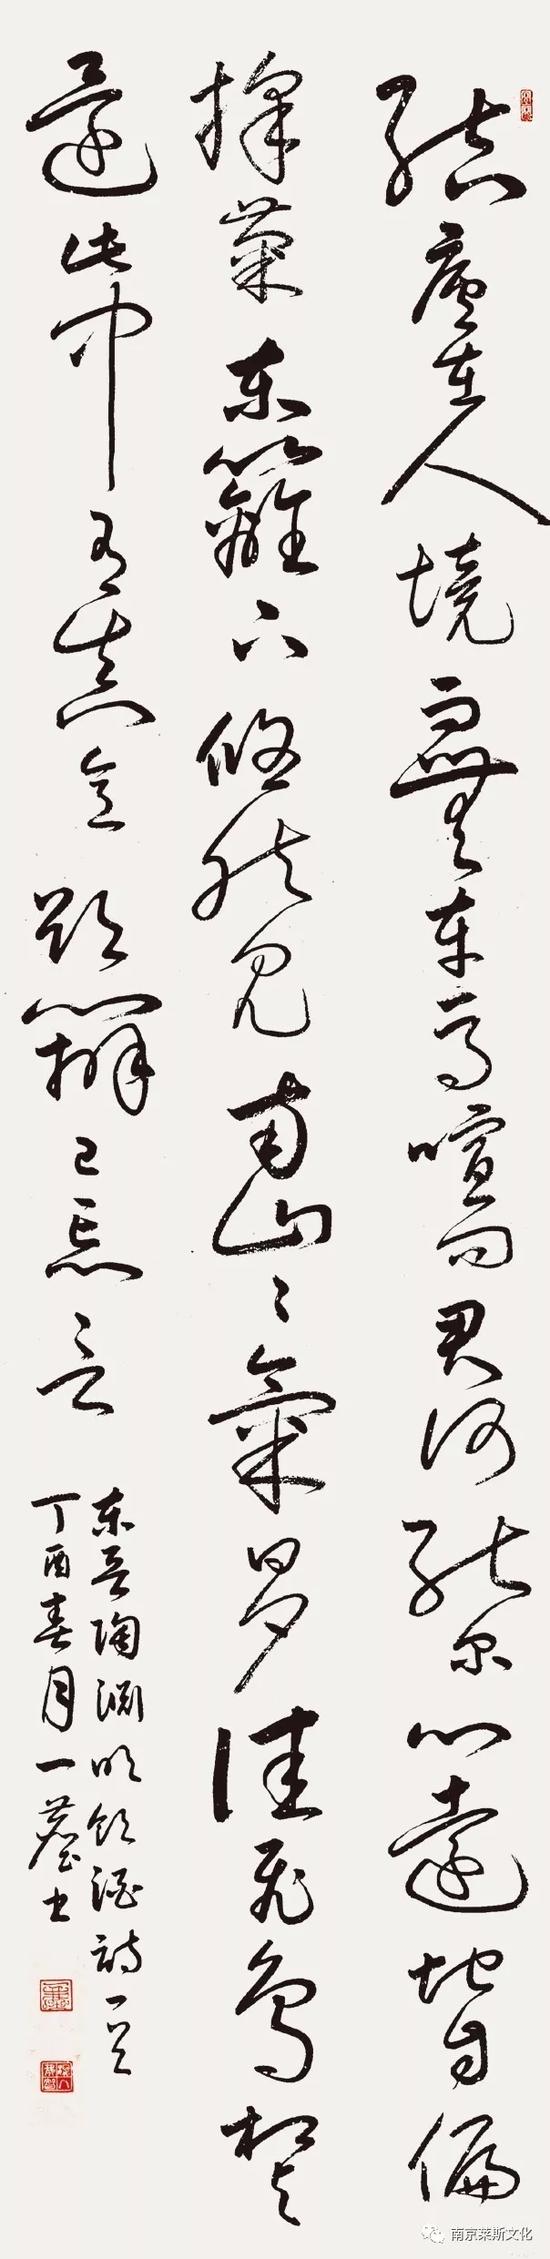 结庐在人境而无车马喧问君何能尔心远地自偏
採菊东篱下悠然见南山山氣日夕佳飛鸟相与
还此中有真意欲辨已忘言
东晋陶渊明饮酒诗一首
丁酉春月一尘书
南京莱斯文化